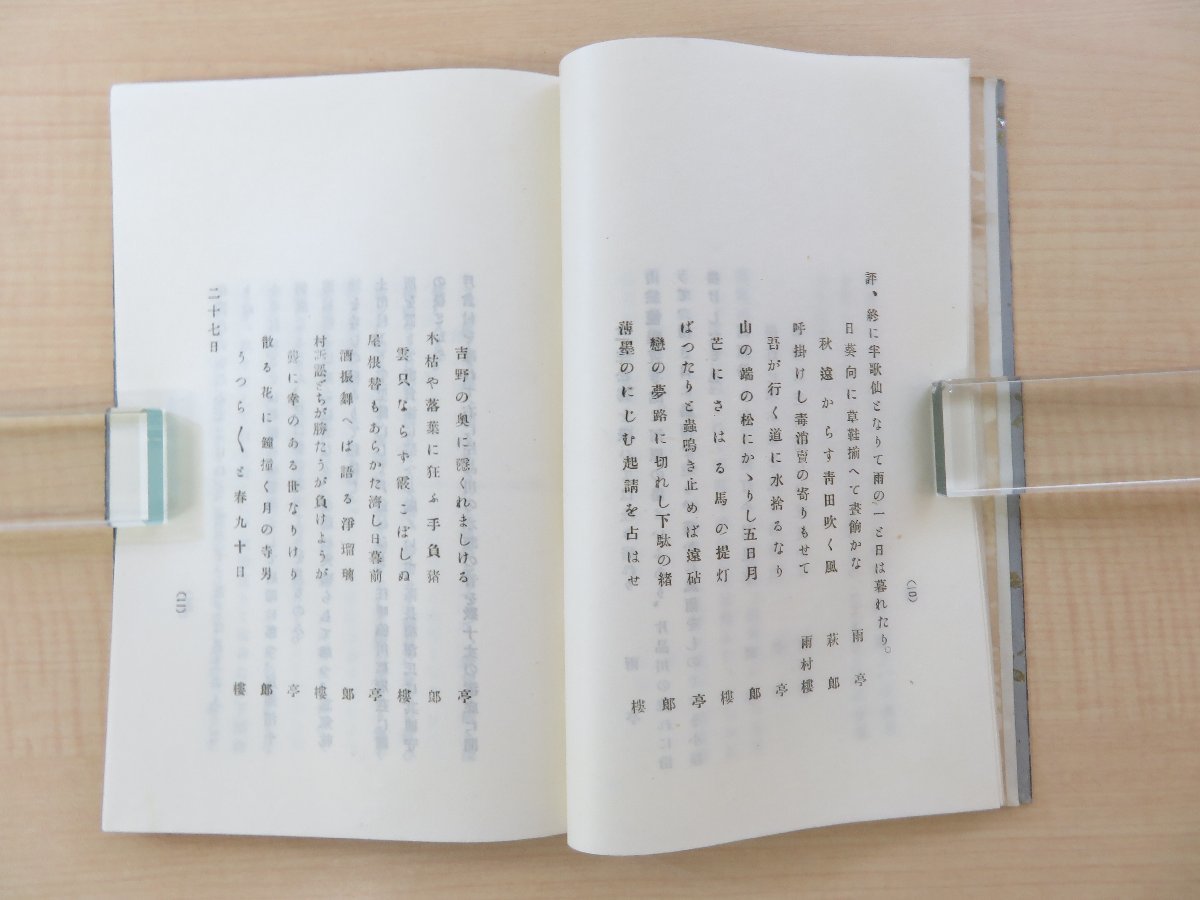 (一〇)
評、終に半歌仙となりて雨の一と日は暮れたり。
日葵向に草鞋揃へて晝餉かな 雨亭
秋遠からす靑田吹く風 萩郎
呼掛けし毒消賣の寄りもせて 雨村樓
吾が行く道に水捨るなり 亭
山の端の松にかゝりし五日月 郎
芒にさはる馬の提灯 樓
ばつたりと蟲鳴き止めば遠砧 亭
戀の夢路に切れし下駄の緒 郎
薄墨のにじむ起請を占はせ 樓
吉野の奥に隱くれましける 亭
木枯や落葉に狂ふ手負猪 郎
雲只ならず霰こぼしぬ 樓
屋根替もあらかた濟し日暮前 亭
酒振舞へば語る淨瑠璃 郎
村訟どちが勝たうが負けようが 樓
聾に幸のある世なりけり 亭
散る花に鐘撞く月の寺男 郎
うつら〱と春九十日 樓
二十七日
(一一)